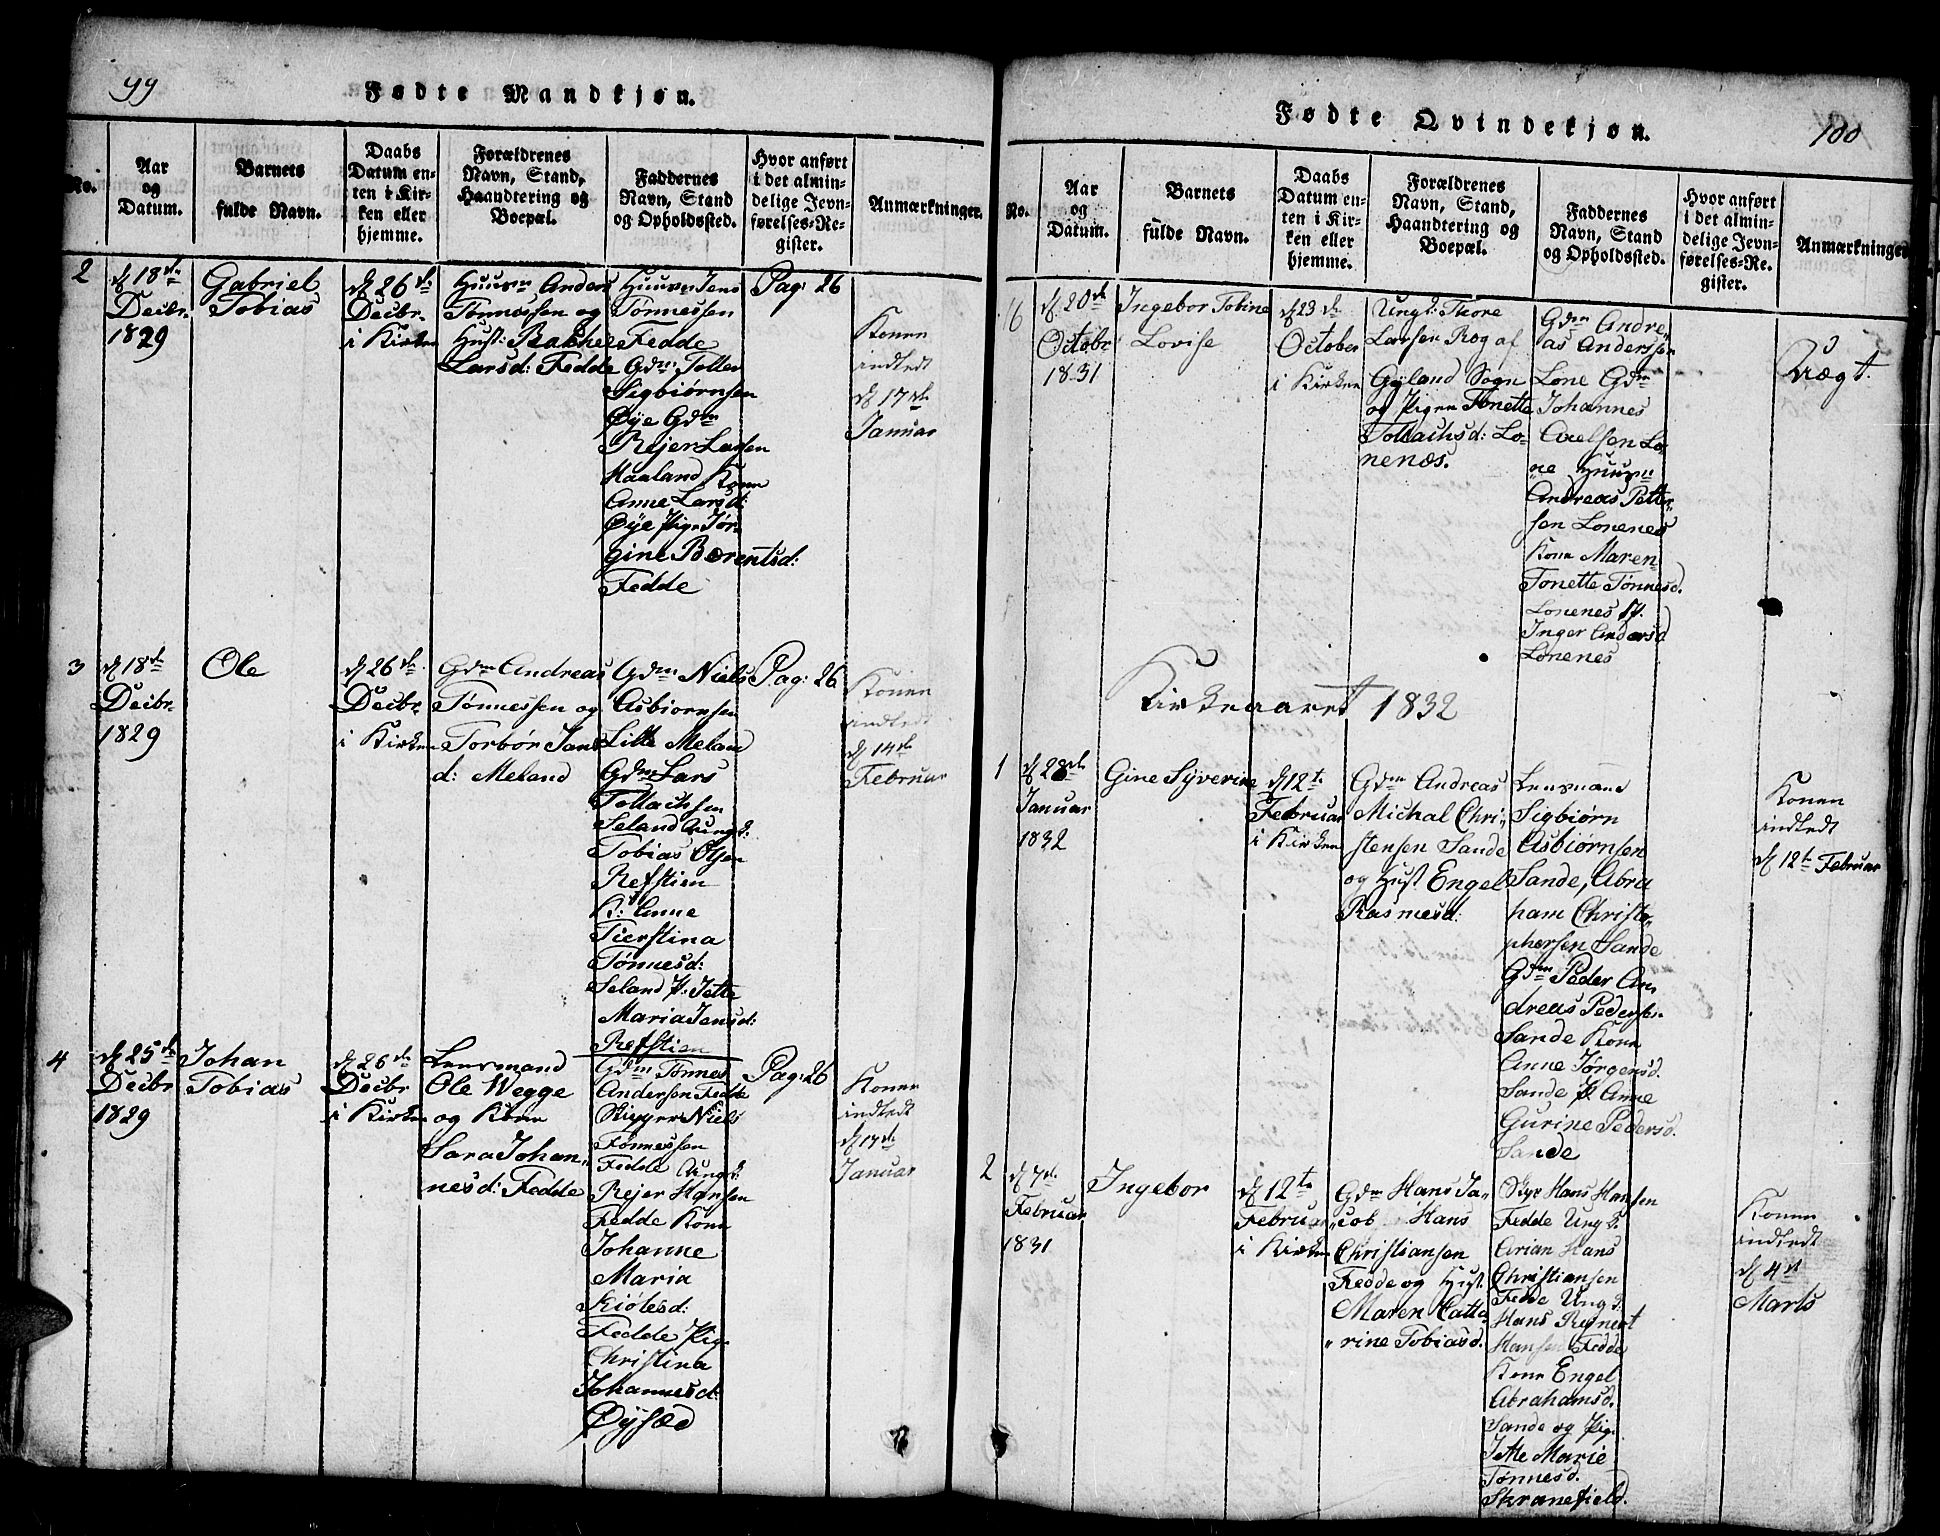 99
Fødte Mandkjøn.
No.
Aar
og
Datum.
Barnets
fulde Navn.
Daabs
Datum en-
ten i Kir-
ken eller
hjemme.
Forældrenes
Navn, Stand,
Haandtering og
Boepæl.
Faddernes
Navn, Stand
og Opholdssted.
Hvor anført
i det almin-
delige Jevn-
førelses-Re-
gister.
Anmærkninger.
2
d 18de
Decbr.
1829
Gabriel
Tobias
d 26de
Decbr.
i Kirken
Huusm Anders
Tønnessen og
Hust: Rakhel
Larsd: Fedde
Huusm Jens
Tønnessen
Fedde
Gdm: Tollev
Sigbiørnsen
Øye Gdm
Rejer Larsen
Haaland Kone
Anne Larsd:
Øye Pige Jør
gine Bærentsd:
Fedde
Pag: 26
Konen
indledt
d 17de
Januar
3
d 18de
Decbr.
1829
Ole
d 26de
Decbr.
i Kirken
Gdm Andreas
Tønnessen og
Torbør Jans
d: Meland
Gdm Niels
Asbiørnsen
Lille Meland
Gdm Lars
Tollachsen
Seland Ungk:
Tobias Olsen
Refstien
K: Anne
Tierstina
Tønnesd:
Seland P: Jette
Maria Jensd:
Refstien
Pag: 26
Konen
indledt
d 14de
Februar
4
d 25de
Decbr
1829
Johan
Tobias
d 26de
Decbr
i Kirken
Lensmand
Ole Wegge
og Kone
Sara Johan
nesd: Fedde
Gdm Tønnes
Andersen Fedde
Skipper Niels
Tønnessen
Fedde Ungk:
Rejer Hansen
Fedde Kone
Johanne
Maria
Kiølesd:
Fedde Pig
Christina
Johannesd:
Øysæd
Pag: 26
Konen
indledt
d 17de
Januar
Fødte Qvindekjøn.
100
No.
Aar
og
Datum.
Barnets
fulde Navn.
Daabs
Datum en-
ten i Kir-
ken eller
hjemme.
Forældrenes
Navn, Stand,
Haandtering og
Boepæl.
Faddernes
Navn, Stand
og Opholdssted.
Hvor anført
i det almin-
delige Jevn-
førelses-Re-
gister.
Anmærkninger
16
d 20de
Octobr
1831
Ingebor Tobine
Lovise
d 23de
October
i Kirken
Ungk: Thore
Larsen Rog af
Gyland Sogn
og Pigen Tonette
Tollachsd: Lo-
nenæs.
Gdm Andre-
as Anderssen
Lone Gdm
Johannes
Axelsen Lo-
ne Huusm
Andreas Petter-
sen Lonenes
Kone Maren
Tonette Tønnesd.
Lonenes P.
Inger Andersd
Lonenes
Uægt.
Kirkeaaret 1832
1
d 28de
Januar
1832
Gine Syverine
d 12te
Februar
i Kirken
Gdm Andreas
Michal Chri-
stensen Sande
og Hust Engel
Rasmesd:
Lensmand
Sigbiørn
Asbiørnsen
Sande, Abra
ham Christo-
phersen Sande
Gdm Peder An
dreas Pedersen
Sande Kone
Anne Jørgensd.
Sande P. Anne
Gurine Pedersd.
Sande
Konen
indledt
d 12te Februar
2
d 7de
Februar
1831
Ingebor
d 12te
Februar
i Kirken
Gdm Hans Ja-
cob Hans
Christiansen
Fedde og Hust.
Maren Catta-
rine Tobiasd.
Skpr Hans Hansen
Fedde Ungk.
Arian Hans
Christiansen
Fedde Ungk.
Hans Reinert
Hansen Fedde
Kone Engel
Abrahamsd.
Sande og Pig.
Jette Marie
Tønnesd.
Skranefield.
Konen
indledt
d 4de
Marts